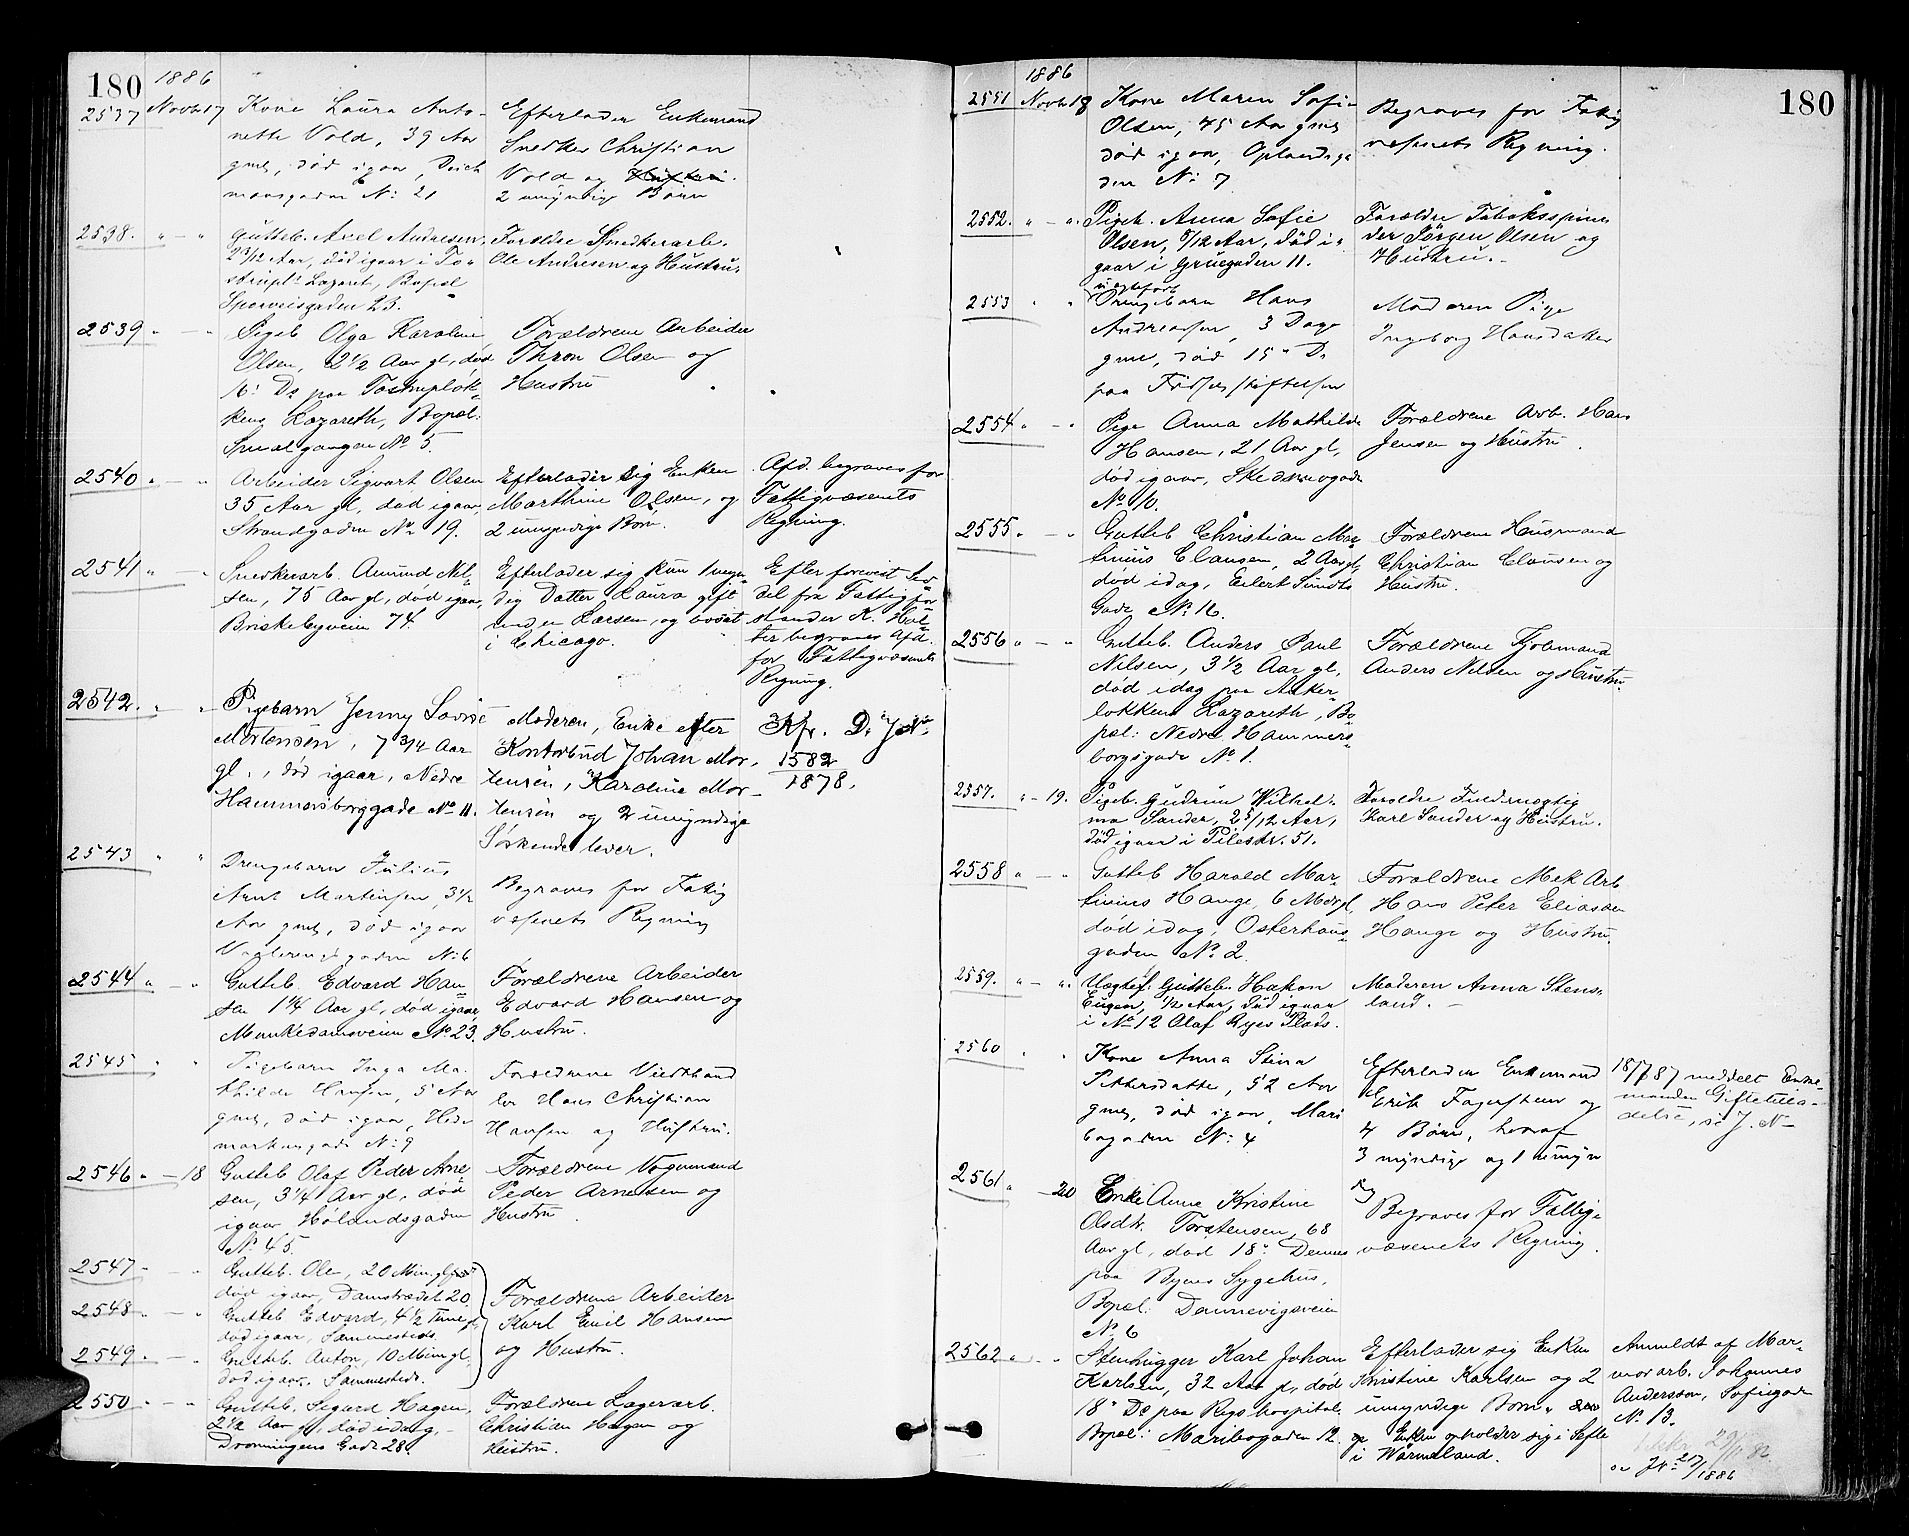 180
1886
2537 Novbr 17 Kone Laura Anto-
nette Vold, 39 Aar
gml, død igaar, Deich
mansgaden No: 21
Efterlader Enkemand
Snedker Christian
Vold og
2 umyndige Børn
2538. " — " Gutteb. Axel Andresen,
2 3/12 Aar, død igaar i To-
Lazaret, Bopæl
Sporveisgaden 23.
Forældre Snedkerarb.
Ole Andresen og Hustru.
2539 " — " Pigeb Olga Karoline
Olsen, 2 1/2 Aar gl, død
16: Ds paa Tostrupløk-
kens Lazareth, Bopæl:
Smalgangen No 5.
Forældrene Arbeider
Thron Olsen og
Hustru
2540 " — " Arbeider Sigvart Olsen
35 Aar gl, død igaar,
Strandgaden No 19.
Efterlader sig Enken
Marthine Olsen, og
2 umyndige Børn.
Afd. begraves for
Fattigvæsenets
Regning.
2541 " — " Snedkerarb. Amund Nil-
sen, 75 Aar gl, død igaar,
Briskebyveien 74.
Efterlader sig kun 1 myn-
dig Datter Laura gift
under Larsen, og bosat
i Chicago.
Efter forevist Sed-
del fra Fattigfor-
stander K. Hol-
ter begraves Afd.
for Fattigvæsenets
Regning.
2542. " " Pigebarn Jenny Lovise
Mortensen, 7 3/4 Aar
gl., død igaar, Nedre
Hammersborggade No 11.
Moderen, Enke efter
Kontorbud Johan Mor-
tensen, Karoline Mor-
tensen og 2 umyndige
Søskende lever.
Kfr. D. J No.
1582
1878.
2543 " " Drengebarn Julius
Arnt Martinsen, 3 1/2
Aar gml, død igaar
Vaalerengsgaden No 6
Begraves for Fattig
væsenets Regning
2544 " — " Gutteb. Edvard Han-
sen 1 1/4 Aar gl, død igaar,
Munkedamsveien No 23.
Forældrene Arbeider
Edvard Hansen og
Hustru.
2545 " " Pigebarn Inga Ma-
thilde Hansen, 5 Aar
gml, død igaar, Hede
markensgade No 9
Forældrene Viedthand
ler Hans Christian
Hansen og Hustru.
2546 " — 18 Gutteb Olaf Peder Arne-
sen, 3 1/4 Aar gl, død
igaar Hølandsgaden
No 45.
Forældrene Vognmand
Peder Arnesen og
Hustru
2547 — " Gutteb. Ole, 20 Min gl
død igaar, Damstrædet 20.
2548 " — " Gutteb Edvard, 4 1/2 Time gl
død igaar, Sammesteds.
2549 " — " Gutteb. Anton, 10 Min gl,
død igaar, Sammesteds.
Forældrene Arbeider
Karl Emil Hansen
og Hustru.
2550 " — " Gutteb. Sigurd Hagen,
2 1/2 Aar gl, død idag,
Dronningens Gade 28.
Forældrene Lagerarb.
Christian Hagen og
Hustru.
180
1886
2551 Novbr 18 Kone Maren Sofie
Olsen, 45 Aar gml,
død igaar, Oplandsga
den No 7
Begraves for Fattig
væsenets Regning.
2552. " — " Pigeb. Anna Sofie
Olsen, 8/12 Aar, død i-
gaar i Gruegaden 11.
Forældre Tobaksspin-
der Jörgen Olsen og
Hustru.
2553 " " uægtefødt
Drengebarn Hans
Andreassen, 3 Dage
gml, død 15" Ds
paa Fødselsstiftelsen
Moderen Pige
Ingeborg Hansdatter
2554 " — " Pige Anna Mathilde
Hansen, 21 Aar gl,
død igaar, Skedsmogade
No 10.
Forældrene Arb. Hans
Jensen og Hustru.
2555 " — " Gutteb Christian Mar-
tinius Clausen, 2 Aar gl,
død idag, Eilert Sundts
Gade No 16.
Forældrene Husmand
Christian Clausen og
Hustru.
2556 " — " Gutteb. Anders Paul
Nilsen, 3 1/2 Aar gl,
død idag paa Anker-
løkkens Lazareth, Bo-
pæl: Nedre Hammers-
borgsgade No 1.
Forældrene
Anders Nilsen og Hustru.
2557. " — 19. Pigeb. Gudrun Wilhel-
ma Sander, 2 5/12 Aar,
død igaar i Pilestr. 51.
Forældre Fuldmægtig
Karl Sander og Hustru.
2558 " — " Gutteb Harald Mar-
tinius Hauge, 6 Mdr gl,
død idag, Osterhaus-
gaden No 2.
Forældrene Mek Arb
Hans Peter Eliassen
Hauge og Hustru.
2559. " — " Uægtef. Gutteb. Hakon
Eugen, 1/12 Aar, død igaar
i No 12 Olaf Ryes Plads.
Moderen Anna Stens-
land.
2560 " " Kone Anna Stina
Pettersdatter, 52 Aar
gml, død igaar, Mari
bogaden No 4
Efterlader Enkemand
Erik Fagerstrøm og
4 Børn, hvoraf
3 myndige og 1 umyn
dig
18/7 87 meddelt Enke-
manden Giftetilla-
delse, se J. No
2561 " — 20 Enke Anne Kristine
Olsdtr. Torstensen, 68
Aar gl, død 18" Dennes
paa Byens Sygehus,
Bopæl: Dannevigsveien
No 6
Begraves for Fattig-
væsenets Regning.
2562 " — " Stenhugger Karl Johan
Karlsen, 32 Aar gl, død
18" Ds paa Rigshospital.
Bopæl: Maribogaden 12.
Efterlader sig Enken
Kristine Karlsen og 2
umyndige Børn
Enken opholder sig i Sefle
i Wärmeland.
Anmeldt af Mar-
morarb. Johannes
Andersson, Sofiegade
No 13.